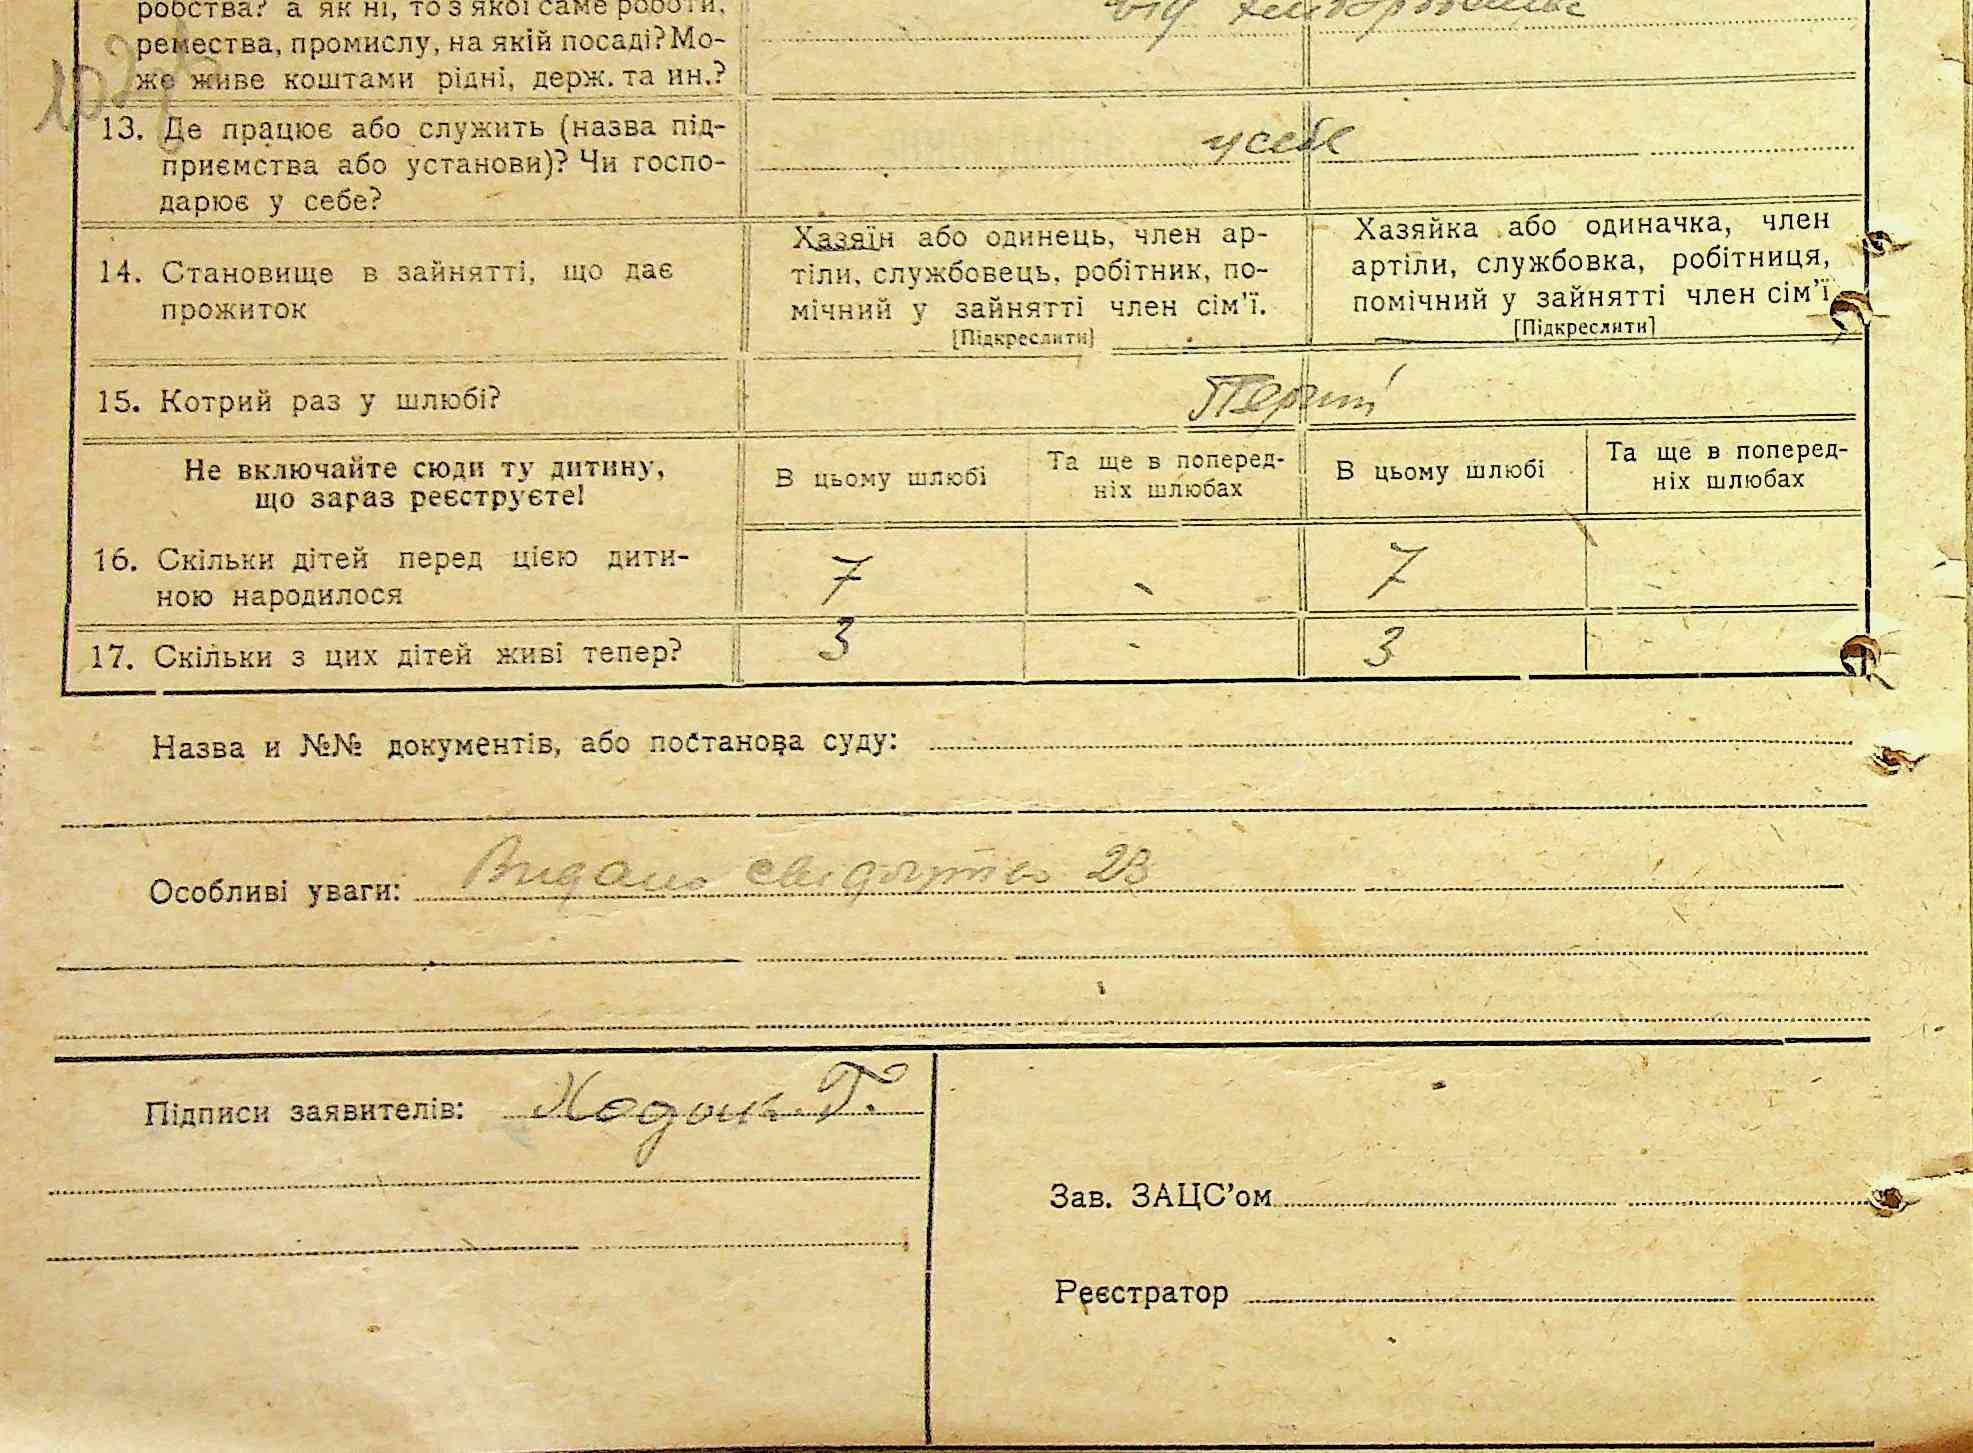 робства? а як ні, то з якої саме роботи,
ремества, промислу, на якій посаді? Мо-
же живе коштами рідні, держ. та ин.?
від хліборобства
13. Де працює або служить (назва під-
приємства або установи)? Чи госпо-
дарює у себе?
у себе
14. Становище в зайнятті, що дає
прожиток
Хазяїн або одинець, член ар-
тіли, службовець, робітник, по-
мічний у зайнятті член сім'ї.
[Підкреслити]
Хазяйка або одиначка, член
артіли, службовка, робітниця,
помічний у зайнятті член сім'ї
[Підкреслити]
15. Котрий раз у шлюбі?
Перший
Не включайте сюди ту дитину,
що зараз реєструєте!
В цьому шлюбі
Та ще в поперед-
ніх шлюбах
В цьому шлюбі
Та ще в поперед-
ніх шлюбах
16. Скільки дітей перед цією дити-
ною народилося
7 - 7 -
17. Скільки з цих дітей живі тепер?
3 - 3
Назва и №№ документів, або постанова суду:
Особливі уваги: Видано свідоцтво 23
Підписи заявителів: Ходак Г.
Зав. ЗАЦС'ом
Реєстратор